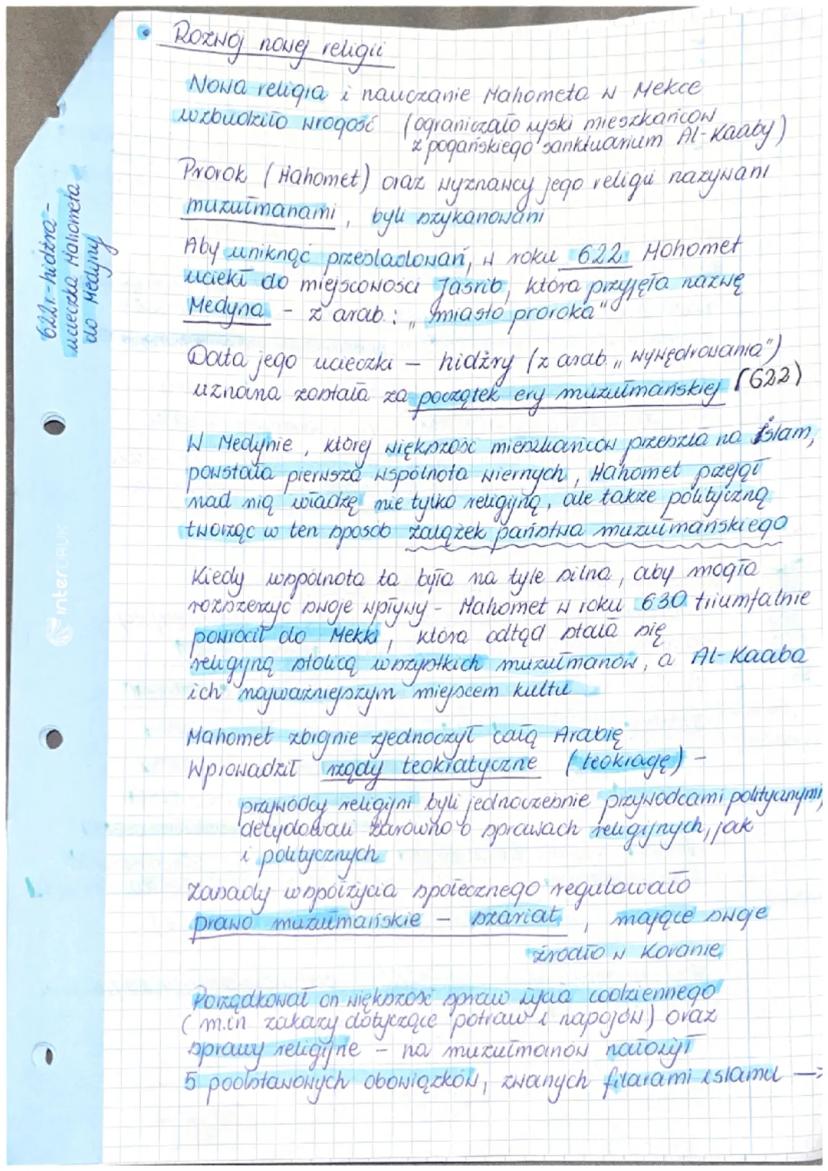 Rozwój nowej religii
Nowa religia i nauczanie Mahometa w Mekce
wzbudziło wrogość (ograniczało zyski mieszkańców
z pogańskiego sanktuarium Al-Kaaby)
Prorok (Mahomet) oraz wyznawcy jego religii nazywani
muzułmanami, byli szykanowani
Aby uniknąć prześladowań, w roku 622 Mahomet
uciekł do miejscowości Jasrib, która przyjęła nazwę
Medyna - z arab.: „miasto proroka"
Data jego ucieczki - hidżry (z arab „wywędrowania")
uznana została za początek ery muzułmańskiej (622)
W Medynie, której większość mieszkańców przeszła na islam,
powstała pierwsza wspólnota wiernych, Mahomet przejął
nad nią władzę nie tylko religijną, ale także polityczną
tworząc w ten sposób zalążek państwa muzułmańskiego
Kiedy wspólnota ta była na tyle silna, aby mogła
rozszerzyć swoje wpływy - Mahomet w roku 630 triumfalnie
powrócił do Mekki, która odtąd stała się
religijną stolicą wszystkich muzułmanów, a Al-Kaaba
ich najważniejszym miejscem kultu
Mahomet zbrojnie zjednoczył całą Arabię
Wprowadził rządy teokratyczne (teokrację) -
przywódcy religijni byli jednocześnie przywódcami politycznymi,
decydowali zarówno o sprawach religijnych, jak
i politycznych
Zasady współżycia społecznego regulowało
prawo muzułmańskie - szariat, mające swoje
źródło w Koranie
Porządkował on większość spraw życia codziennego
(m.in zakazy dotyczące potraw i napojów) oraz
sprawy religijne - na muzułmanów nałożył
5 podstawowych obowiązków, zwanych filarami islamu →
622r - hidżra -
ucieczka Mahometa
do Medyny
interDRUK